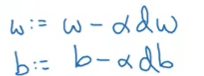 w := w - αdw
b := b - αdb